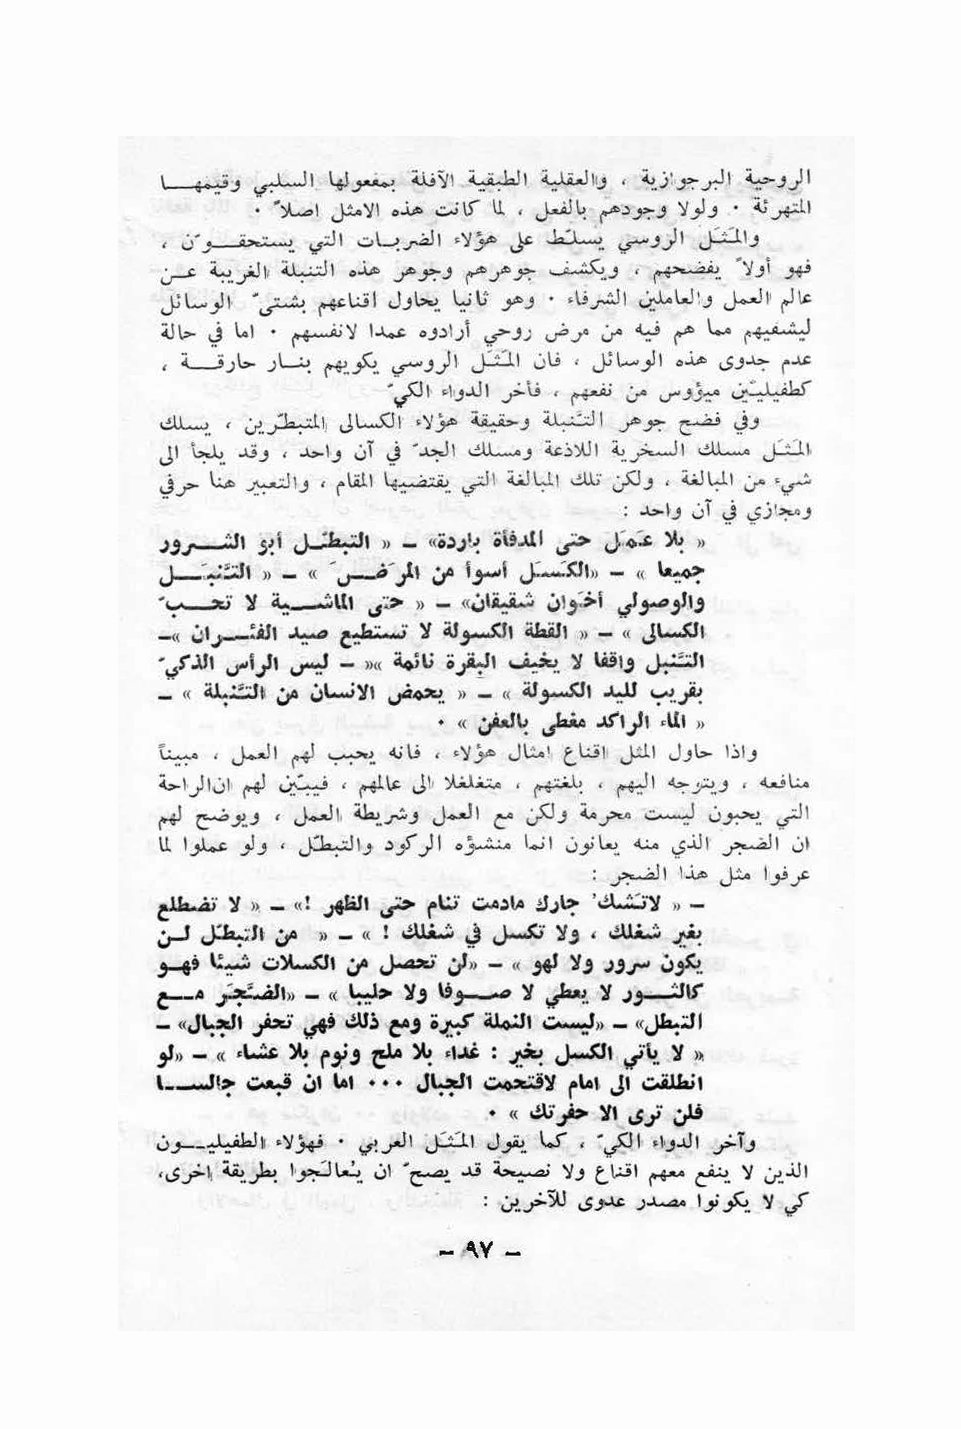 الروحية البرجوازية ، والعقلية الطبقية الآفلة بمفعولها السلبي وقيمهـــا
المتهرئة ٠ ولولا وجودهم بالفعل ، لما كانت هذه الامثل اصلاً ٠
والمَثَل الروسي يسلّط على هؤلاء الضربـات التي يستحقــوّن ،
فهو أولاً يفضحهم ، ويكشف جوهرهم وجوهر هذه التنبلة الغريبة عــن
عالم العمل والعاملين الشرفاء ٠ وهو ثانيا يحاول اقناعهم بشتىّ الوسائل
ليشفيهم مما هم فيه من مرض روحي أرادوه عمدا لانفسهم ٠ اما في حالة
عدم جدوى هذه الوسائل ، فان المَثَل الروسي يكويهم بنــار حارقـــة ،
كطفيليّين ميؤوس من نفعهم ، فأخر الدواء الكيّ
وفي فضح جوهر التَّنبلة وحقيقة هؤلاء الكسالى المتبطّرين ، يسلك
المَثَل مسلك السخرية اللاذعة ومسلك الجدّ في آن واحد ، وقد يلجأ الى
شيء من المبالغة ، ولكن تلك المبالغة التي يقتضيها المقام ، والتعبير هنا حرفي
ومجازي في آن واحد :
« بلا عَمَل حتى المدفأة باردة» ــ « التبطّـل أبو الشـــرور
جميعا » ــ «الكَسَل أسوأ من المرَضــَ » ــ « التَّنبَـــل
والوصولي أخَوان شقيقان» ــ « حتى الماشـــية لا تحـــبّ
الكسالى » ــ « القطة الكسولة لا تستطيع صيد الفئـــران »ــ
التَّنبل واقفا لا يخيف البقرة نائمة »« ــ ليس الرأس الذكيّ
بقريب لليد الكسولة » ــ « يحمض الانسان من التَّنبلة » ــ
« الماء الراكد مغطى بالعفن » ٠
واذا حاول المثل اقناع امثال هؤلاء ، فانه يحبب لهم العمل ، مبيناً
منافعه ، ويتوجه اليهم ، بلغتهم ، متغلغلا الى عالمهم ، فيبيّن لهم ان‌الراحة
التي يحبون ليست محرمة ولكن مع العمل وشريطة العمل ، ويوضح لهم
ان الضجر الذي منه يعانون انما منشؤه الركود والتبطّل ، ولو عملوا لما
عرفوا مثل هذا الضجر :
ــ « لاتَشك' جارك مادمت تنام حتى الظهر !» ــ « لا تضطلع
بغير شغلك ، ولا تكسل في شغلك ! » ــ « من التبطّل لــن
يكون سرور ولا لهو » ــ «لن تحصل من الكسلات شيئا فهــو
كالثـــور لا يعطي لا صـــوفا ولا حليبا » ــ «الضَّجَر مـــع
التبطل» ــ «ليست النملة كبيرة ومع ذلك فهي تحفر الجبال» ــ
« لا يأتي الكسل بخير : غداء بلا ملح ونوم بلا عشاء » ــ «لو
انطلقت الى امام لاقتحمت الجبال ٠٠٠ اما ان قبعت جالســـا
فلن ترى الا حفرتك » ٠
وآخر الدواء الكيّ ، كما يقول المَثَل العربي ٠ فهؤلاء الطفيليـــون
الذين لا ينفع معهم اقناع ولا نصيحة قد يصحّ ان يُعالَجوا بطريقة اخرى،
كي لا يكونوا مصدر عدوى للآخرين :
ــ ٩٧ ــ